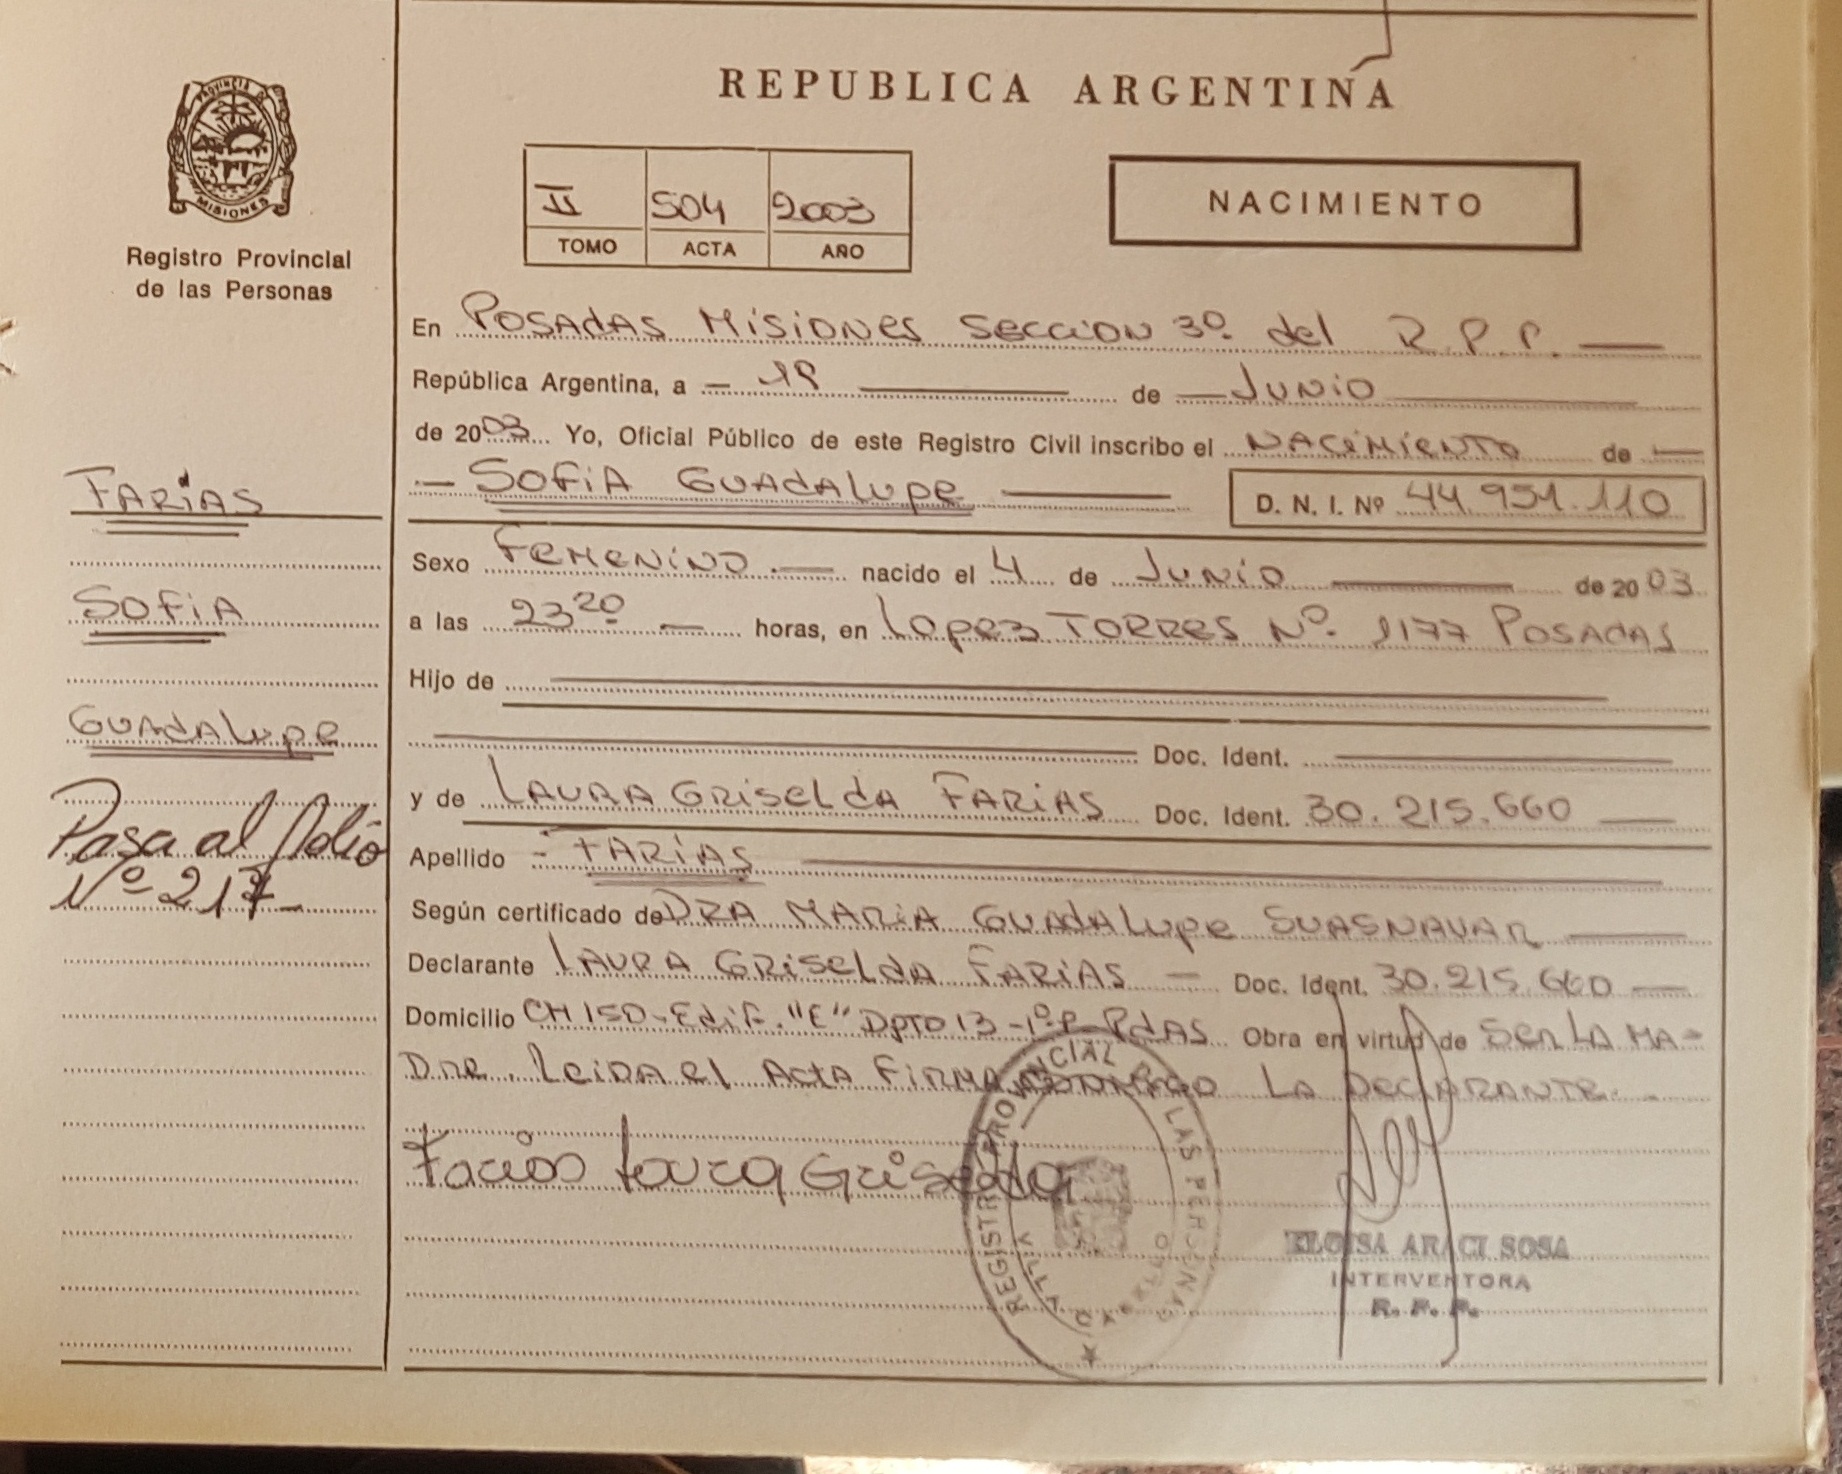 REPUBLICA ARGENTINA
PROVINCIA DE
MISIONES
Registro Provincial
de las Personas
II 504 2003
TOMO ACTA AÑO
NACIMIENTO
En POSADAS MISIONES SECCION 3º del R.P.P.
República Argentina, a de JUNIO
de 2003 Yo, Oficial Público de este Registro Civil inscribo el NACIMIENTO de
SOFIA GUADALUPE D. N. I. Nº 44.951.110
Sexo FEMENINO nacido el 4 de JUNIO de 2003
a las 23 20 horas, en LOPEZ TORRES Nº 1177 POSADAS
Hijo de
Doc. Ident.
y de LAURA GRISELDA FARIAS Doc. Ident. 30.215.660
Apellido FARIAS
Según certificado de DRA MARIA GUADALUPE SUASNAVAR
Declarante LAURA GRISELDA FARIAS Doc. Ident. 30.215.660
Domicilio CH 150-Edif. "E" DPTO 13-1º P- PdAS Obra en virtud de SER LA MA-
DRE. LEIDA el ACTA FIRMA CONMIGO LA DECLARANTE.
Farias Laura Griselda
REGISTRO PROVINCIAL LAS PERSONAS
VILLA
ELOISA ARACI SOSA
INTERVENTORA
R. P. P.
FARIAS
SOFIA
GUADALUPE
Pasa al folio
Nº 217-